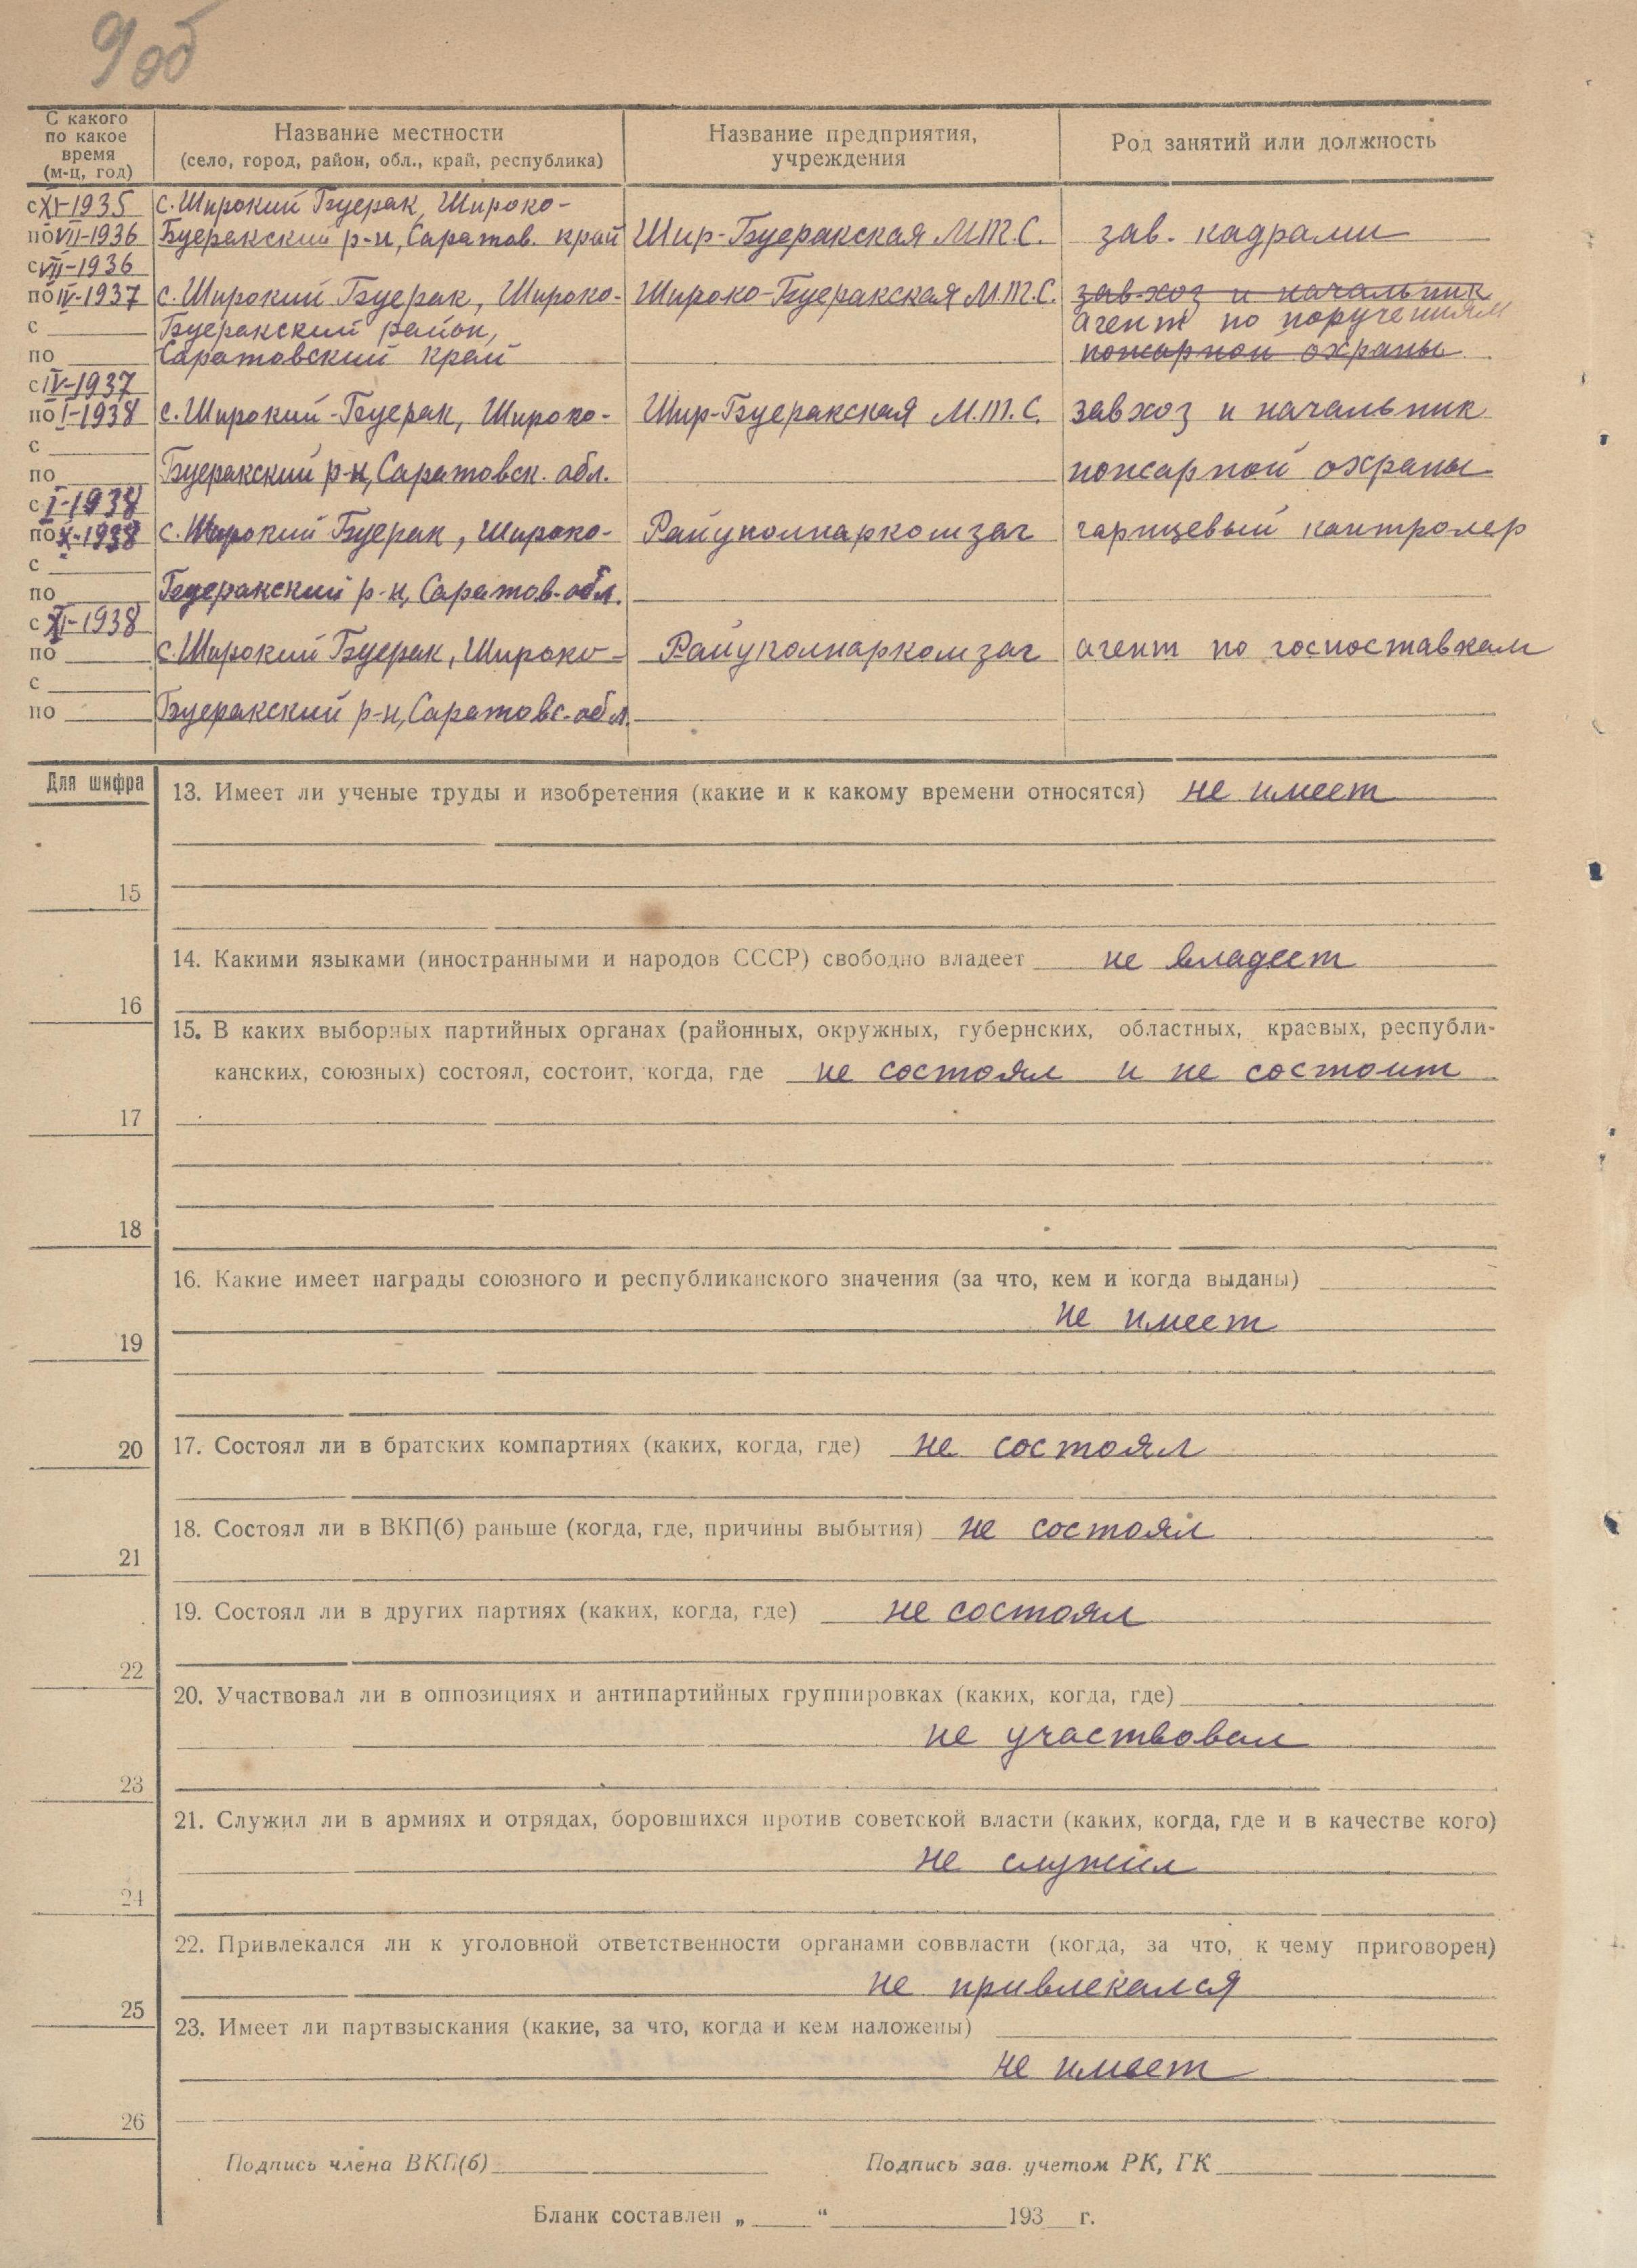 9 об
С какого по какое время (м-ц, год)
Название местности (село, город, район, обл., край, республика)
Название предприятия, учреждения
Род занятий или должность
с XI-1935 с. Широкий Буерак, Широко-
по VII-1936 Буеракский р-н, Саратов. край Шир-Буеракская М.Т.С. зав. кадрами
с VII-1936
по IV-1937 с. Широкий Буерак, Широко- Широко-Буеракская М.Т.С. завхоз и начальник
с Буеракский район, агент по поручениям
по Саратовский край пожарной охраны
с IV-1937
по I-1938 с. Широкий-Буерак, Широко- Шир-Буеракская М.Т.С. завхоз и начальник
с
по Буеракский р-н, Саратовск. обл. пожарной охраны
с I-1938
по X-1938 с. Широкий Буерак, Широко- Райуполнаркомзаг гарнцевый контролер
с
по Буеракский р-н, Саратов. обл.
с XI-1938
по с. Широкий Буерак, Широко- Райуполнаркомзаг агент по госпоставкам
с
по Буеракский р-н, Саратовс. обл.
Для шифра
13. Имеет ли ученые труды и изобретения (какие и к какому времени относятся) не имеет
15
14. Какими языками (иностранными и народов СССР) свободно владеет не владеет
16
15. В каких выборных партийных органах (районных, окружных, губернских, областных, краевых, республи-
канских, союзных) состоял, состоит, когда, где не состоял и не состоит
17
18
16. Какие имеет награды союзного и республиканского значения (за что, кем и когда выданы)
не имеет
19
20 17. Состоял ли в братских компартиях (каких, когда, где) не состоял
18. Состоял ли в ВКП(б) раньше (когда, где, причины выбытия) не состоял
21
19. Состоял ли в других партиях (каких, когда, где) не состоял
22
20. Участвовал ли в оппозициях и антипартийных группировках (каких, когда, где)
не участвовал
23
21. Служил ли в армиях и отрядах, боровшихся против советской власти (каких, когда, где и в качестве кого)
не служил
24
22. Привлекался ли к уголовной ответственности органами соввласти (когда, за что, к чему приговорен)
не привлекался
25
23. Имеет ли партвзыскания (какие, за что, когда и кем наложены)
не имеет
26
Подпись члена ВКП(б) Подпись зав. учетом РК, ГК
Бланк составлен „ “ 193 г.